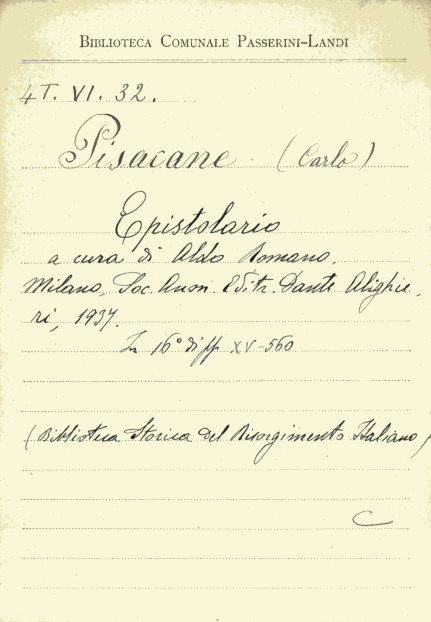 BIBLIOTECA COMUNALE PASSERINI-LANDI
4T. VI. 32.
Pisacane (Carlo)
Epistolario
a cura di Aldo Romano.
Milano, Soc. Anon. Editr. Dante Alighie-
ri, 1937.
In 16° di pp. XV-560
(Biblioteca Storica del Risorgimento Italiano)
C